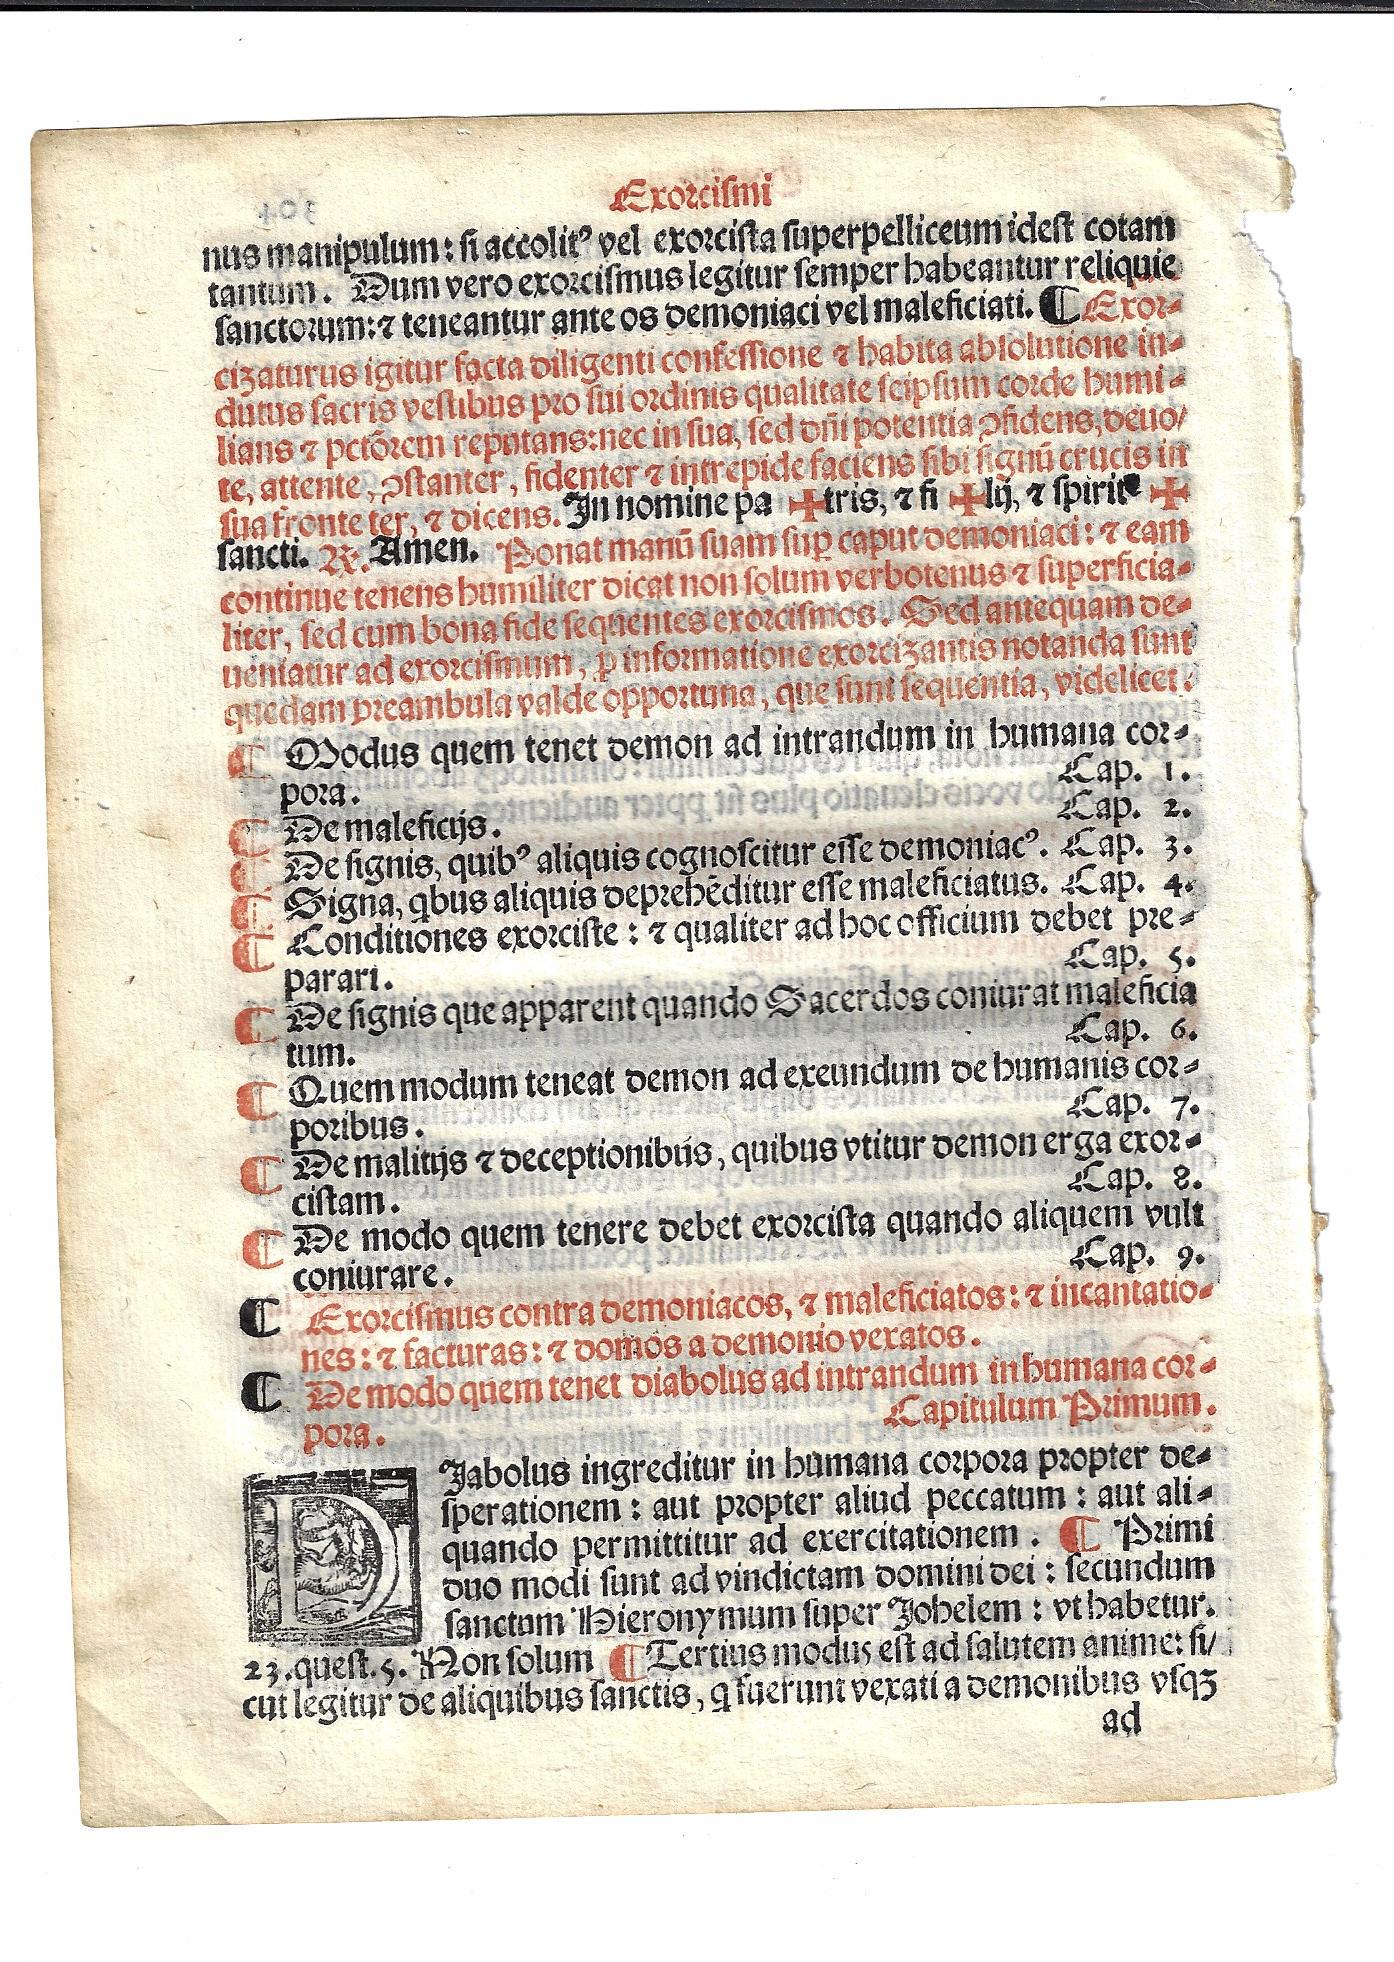 Exorcismi
nus manipulum: si accolitꝰ vel exorcista superpelliceum idest cotam
tantum. Dum vero exorcismus legitur semper habeantur reliquie
sanctorum: ⁊ teneantur ante os demoniaci vel maleficiati. ¶ Exor-
cizaturus igitur facta diligenti confessione ⁊ habita absolutione in-
dutus sacris vestibus pro sui ordinis qualitate seipsum corde humi-
lians ⁊ pctõrem reputans: nec in sua, sed dñi potentia ꝯfidens, deuo/
te, attente, ꝯstanter, fidenter ⁊ intrepide faciens sibi signũ crucis in
sua fronte ter, ⁊ dicens. In nomine pa ✠ tris, ⁊ fi ✠ lij, ⁊ spiritꝰ ✠
sancti. ℟. Amen. Ponat manũ suam suꝑ caput demoniaci: ⁊ eam
continue tenens humiliter dicat non solum verbotenus ⁊ superficia-
liter, sed cum bona fide sequentes exorcismos. Sed antequam de-
ueniatur ad exorcismum, ꝓ informatione exorcizantis notanda sunt
quedam preambula valde opportuna, que sunt sequentia, videlicet.
¶ Modus quem tenet demon ad intrandum in humana cor-
pora. Cap. 1.
¶ De maleficijs. Cap. 2.
¶ De signis, quibꝰ aliquis cognoscitur esse demoniacꝰ. Cap. 3.
¶ Signa, qbus aliquis deprehẽditur esse maleficiatus. Cap. 4.
¶ Conditiones exorciste: ⁊ qualiter ad hoc officium debet pre-
parari. Cap. 5.
¶ De signis que apparent quando Sacerdos coniurat maleficia
tum. Cap. 6.
¶ Quem modum teneat demon ad exeundum de humanis cor-
poribus. Cap. 7.
¶ De malitijs ⁊ deceptionibus, quibus vtitur demon erga exor-
cistam. Cap. 8.
¶ De modo quem tenere debet exorcista quando aliquem vult
coniurare. Cap. 9.
¶ Exorcismus contra demoniacos, ⁊ maleficiatos: ⁊ incantatio-
nes: ⁊ facturas: ⁊ domos a demonio vexatos.
¶ De modo quem tenet diabolus ad intrandum in humana cor-
pora. Capitulum Primum.
DIabolus ingreditur in humana corpora propter de-
sperationem: aut propter aliud peccatum: aut ali-
quando permittitur ad exercitationem. ¶ Primi
duo modi sunt ad vindictam domini dei: secundum
sanctum Hieronymum super Johelem: vt habetur.
23. quest. 5. Non solum ¶ Tertius modus est ad salutem anime: si/
cut legitur de aliquibus sanctis, q fuerunt vexati a demonibus vsqꝫ
ad